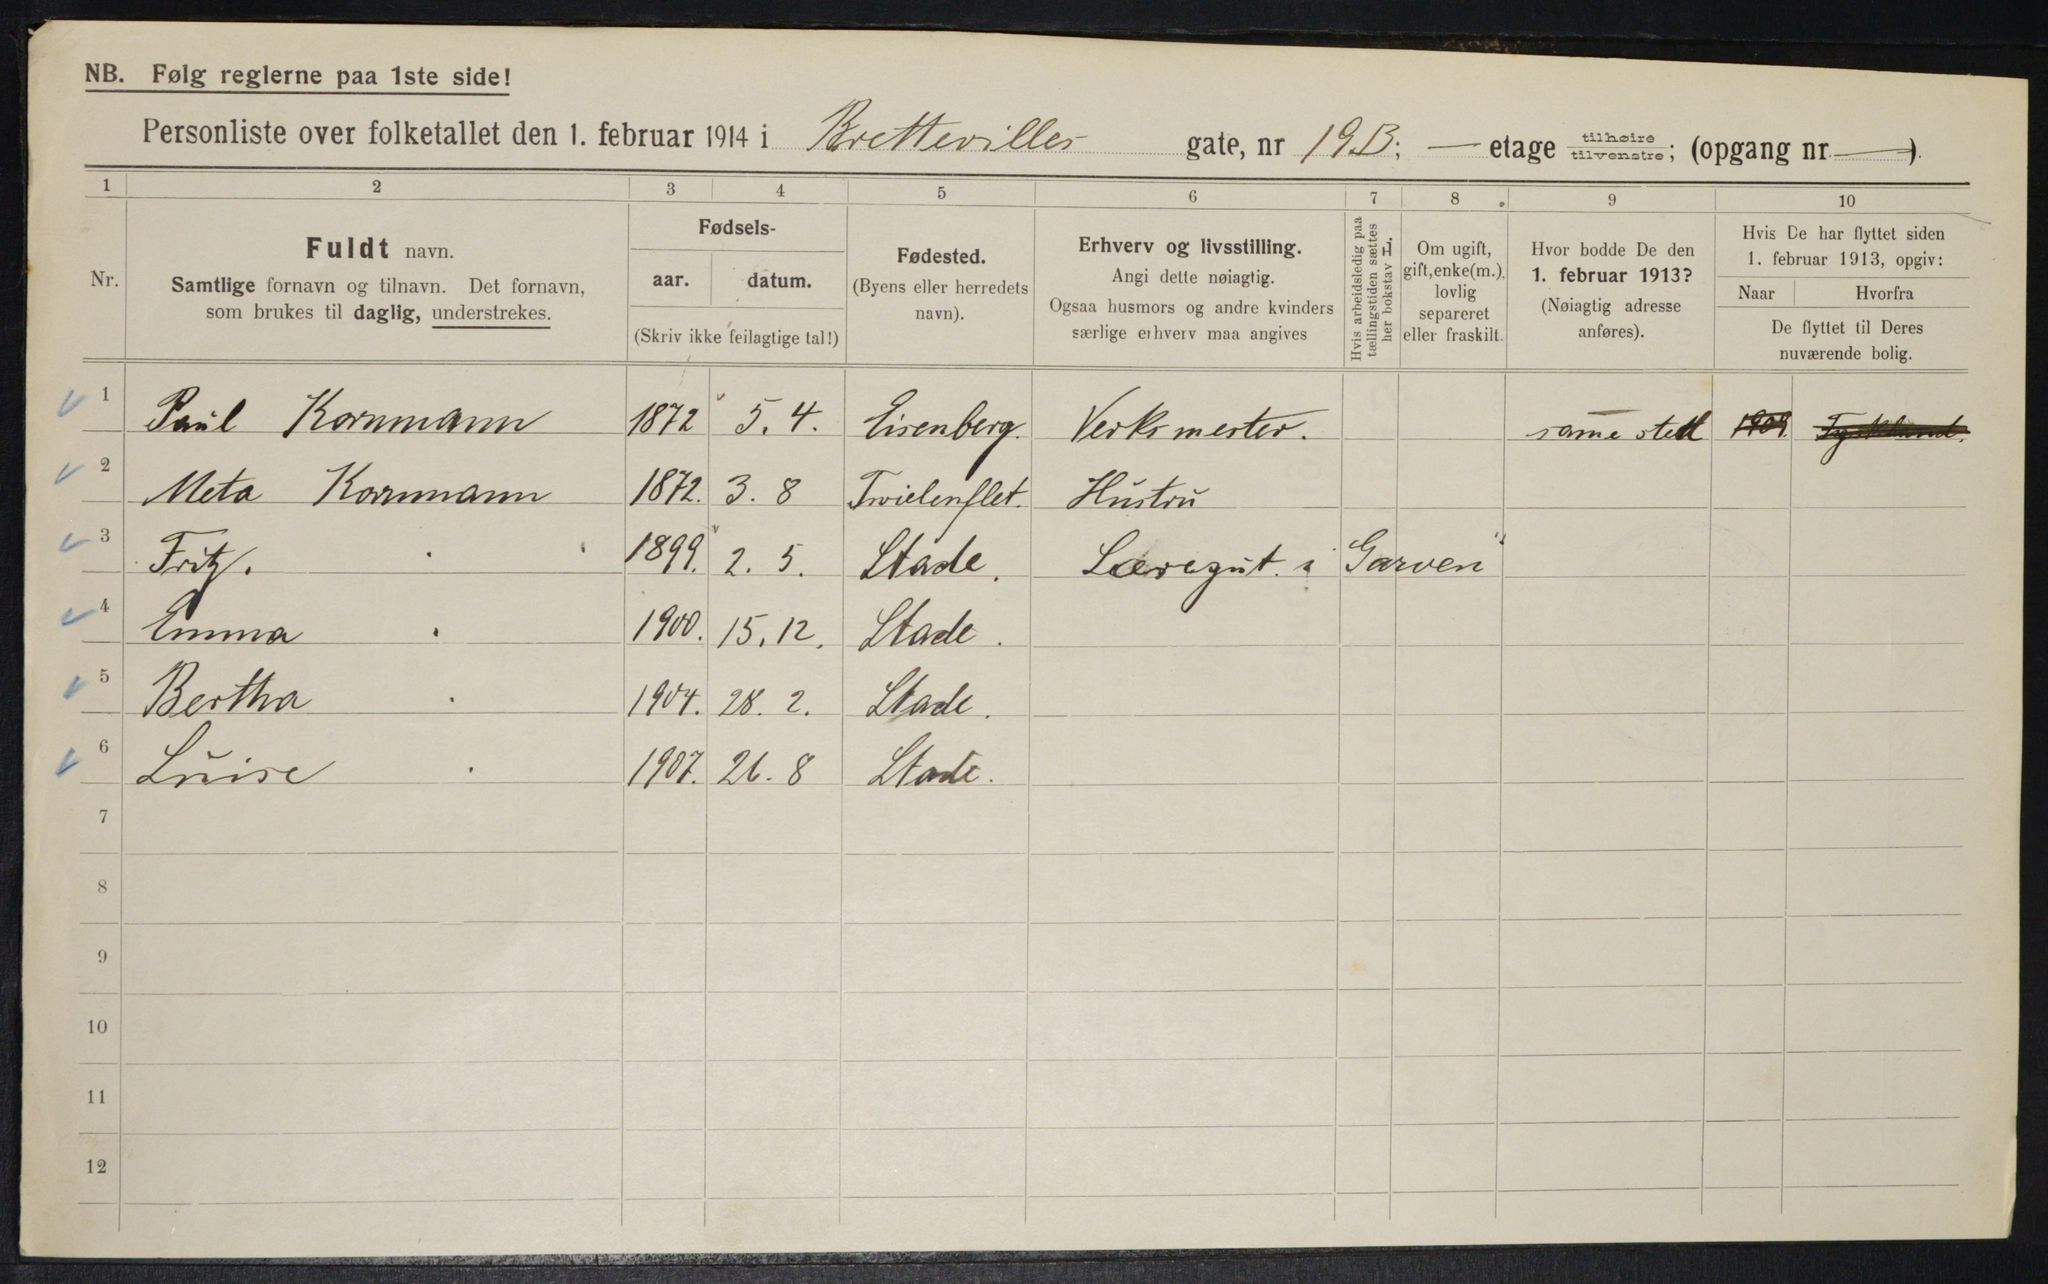 NB. Følg reglerne paa 1ste side!
Personliste over folketallet den 1. februar 1914 i Brettevilles gate, nr 19B; — etage tilhøire tilvenstre; (opgang nr. —).
1 2 3 4 5 6 7 8 9 10
Nr.
Fuldt navn.
Samtlige fornavn og tilnavn. Det fornavn,
som brukes til daglig, understrekes.
Fødsels-
aar. datum.
(Skriv ikke feilagtige tal!)
Fødested.
(Byens eller herredets
navn).
Erhverv og livsstilling.
Angi dette nøiagtig.
Ogsaa husmors og andre kvinders
særlige erhverv maa angives
Hvis arbeidsledig paa
tællingstiden sættes
her bokstav L.
Om ugift,
gift, enke(m.),
lovlig
separeret
eller fraskilt.
Hvor bodde De den
1. februar 1913?
(Nøiagtig adresse
anføres).
Hvis De har flyttet siden
1. februar 1913, opgiv:
Naar Hvorfra
De flyttet til Deres
nuværende bolig.
1 Paul Kornmann 1872 5.4. Eisenberg. Verksmester. samme sted 1909. Tyskland.
2 Meta Kornmann 1872. 3.8 Twielenflet. Hustru
3 Fritz. " " 1899. 2.5. Stade. Læregut. i Garveri
4 Emma " 1900. 15.12. Stade.
5 Bertha " 1904. 28.2. Stade.
6 Luise " 1907. 26.8 Stade.
7
8
9
10
11
12